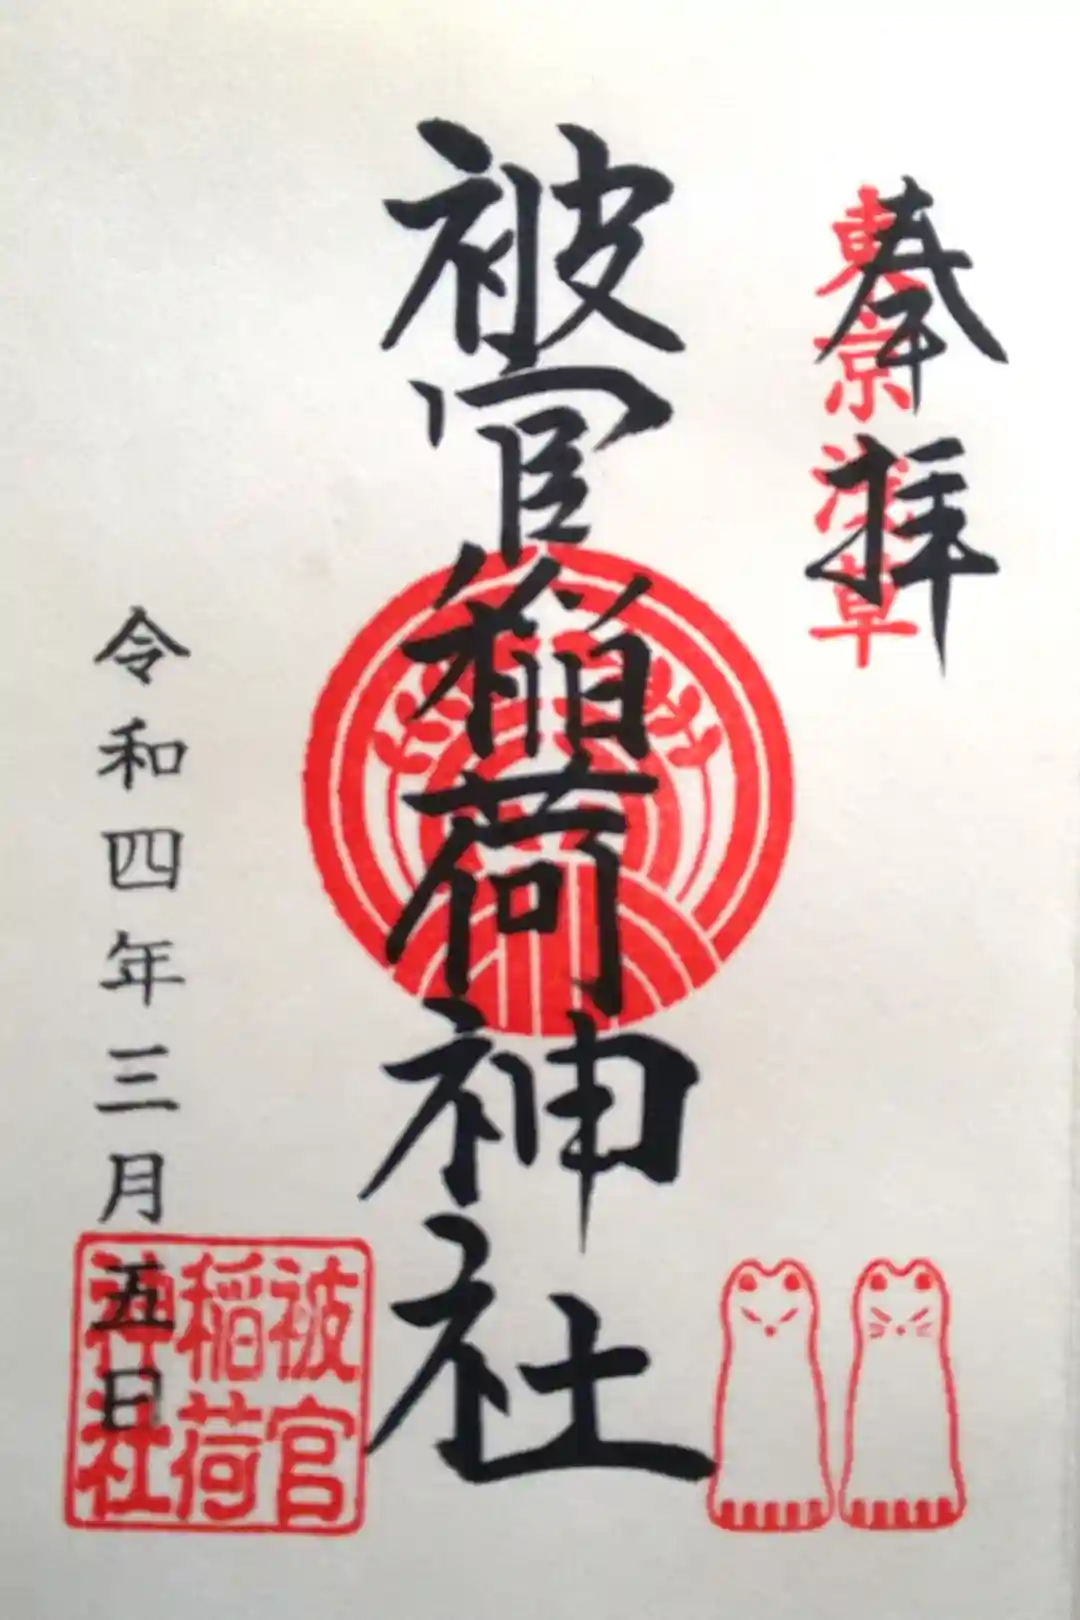 奉拝
東京浅草
被官稲荷神社
令和四年三月五日
被官
稲荷
神社